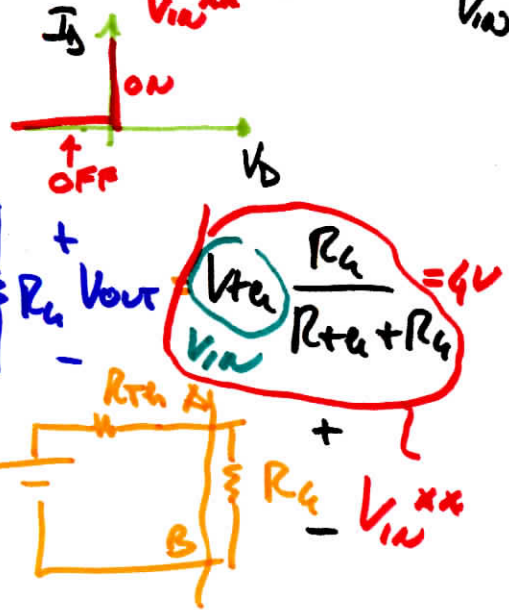 V_IN** V_IN
I_D
ON
OFF
V_D
+
R_4 V_OUT = V_th R_4 / (R_th + R_4) = 4V
V_IN
-
R_th A
+
R_4
- V_IN**
B